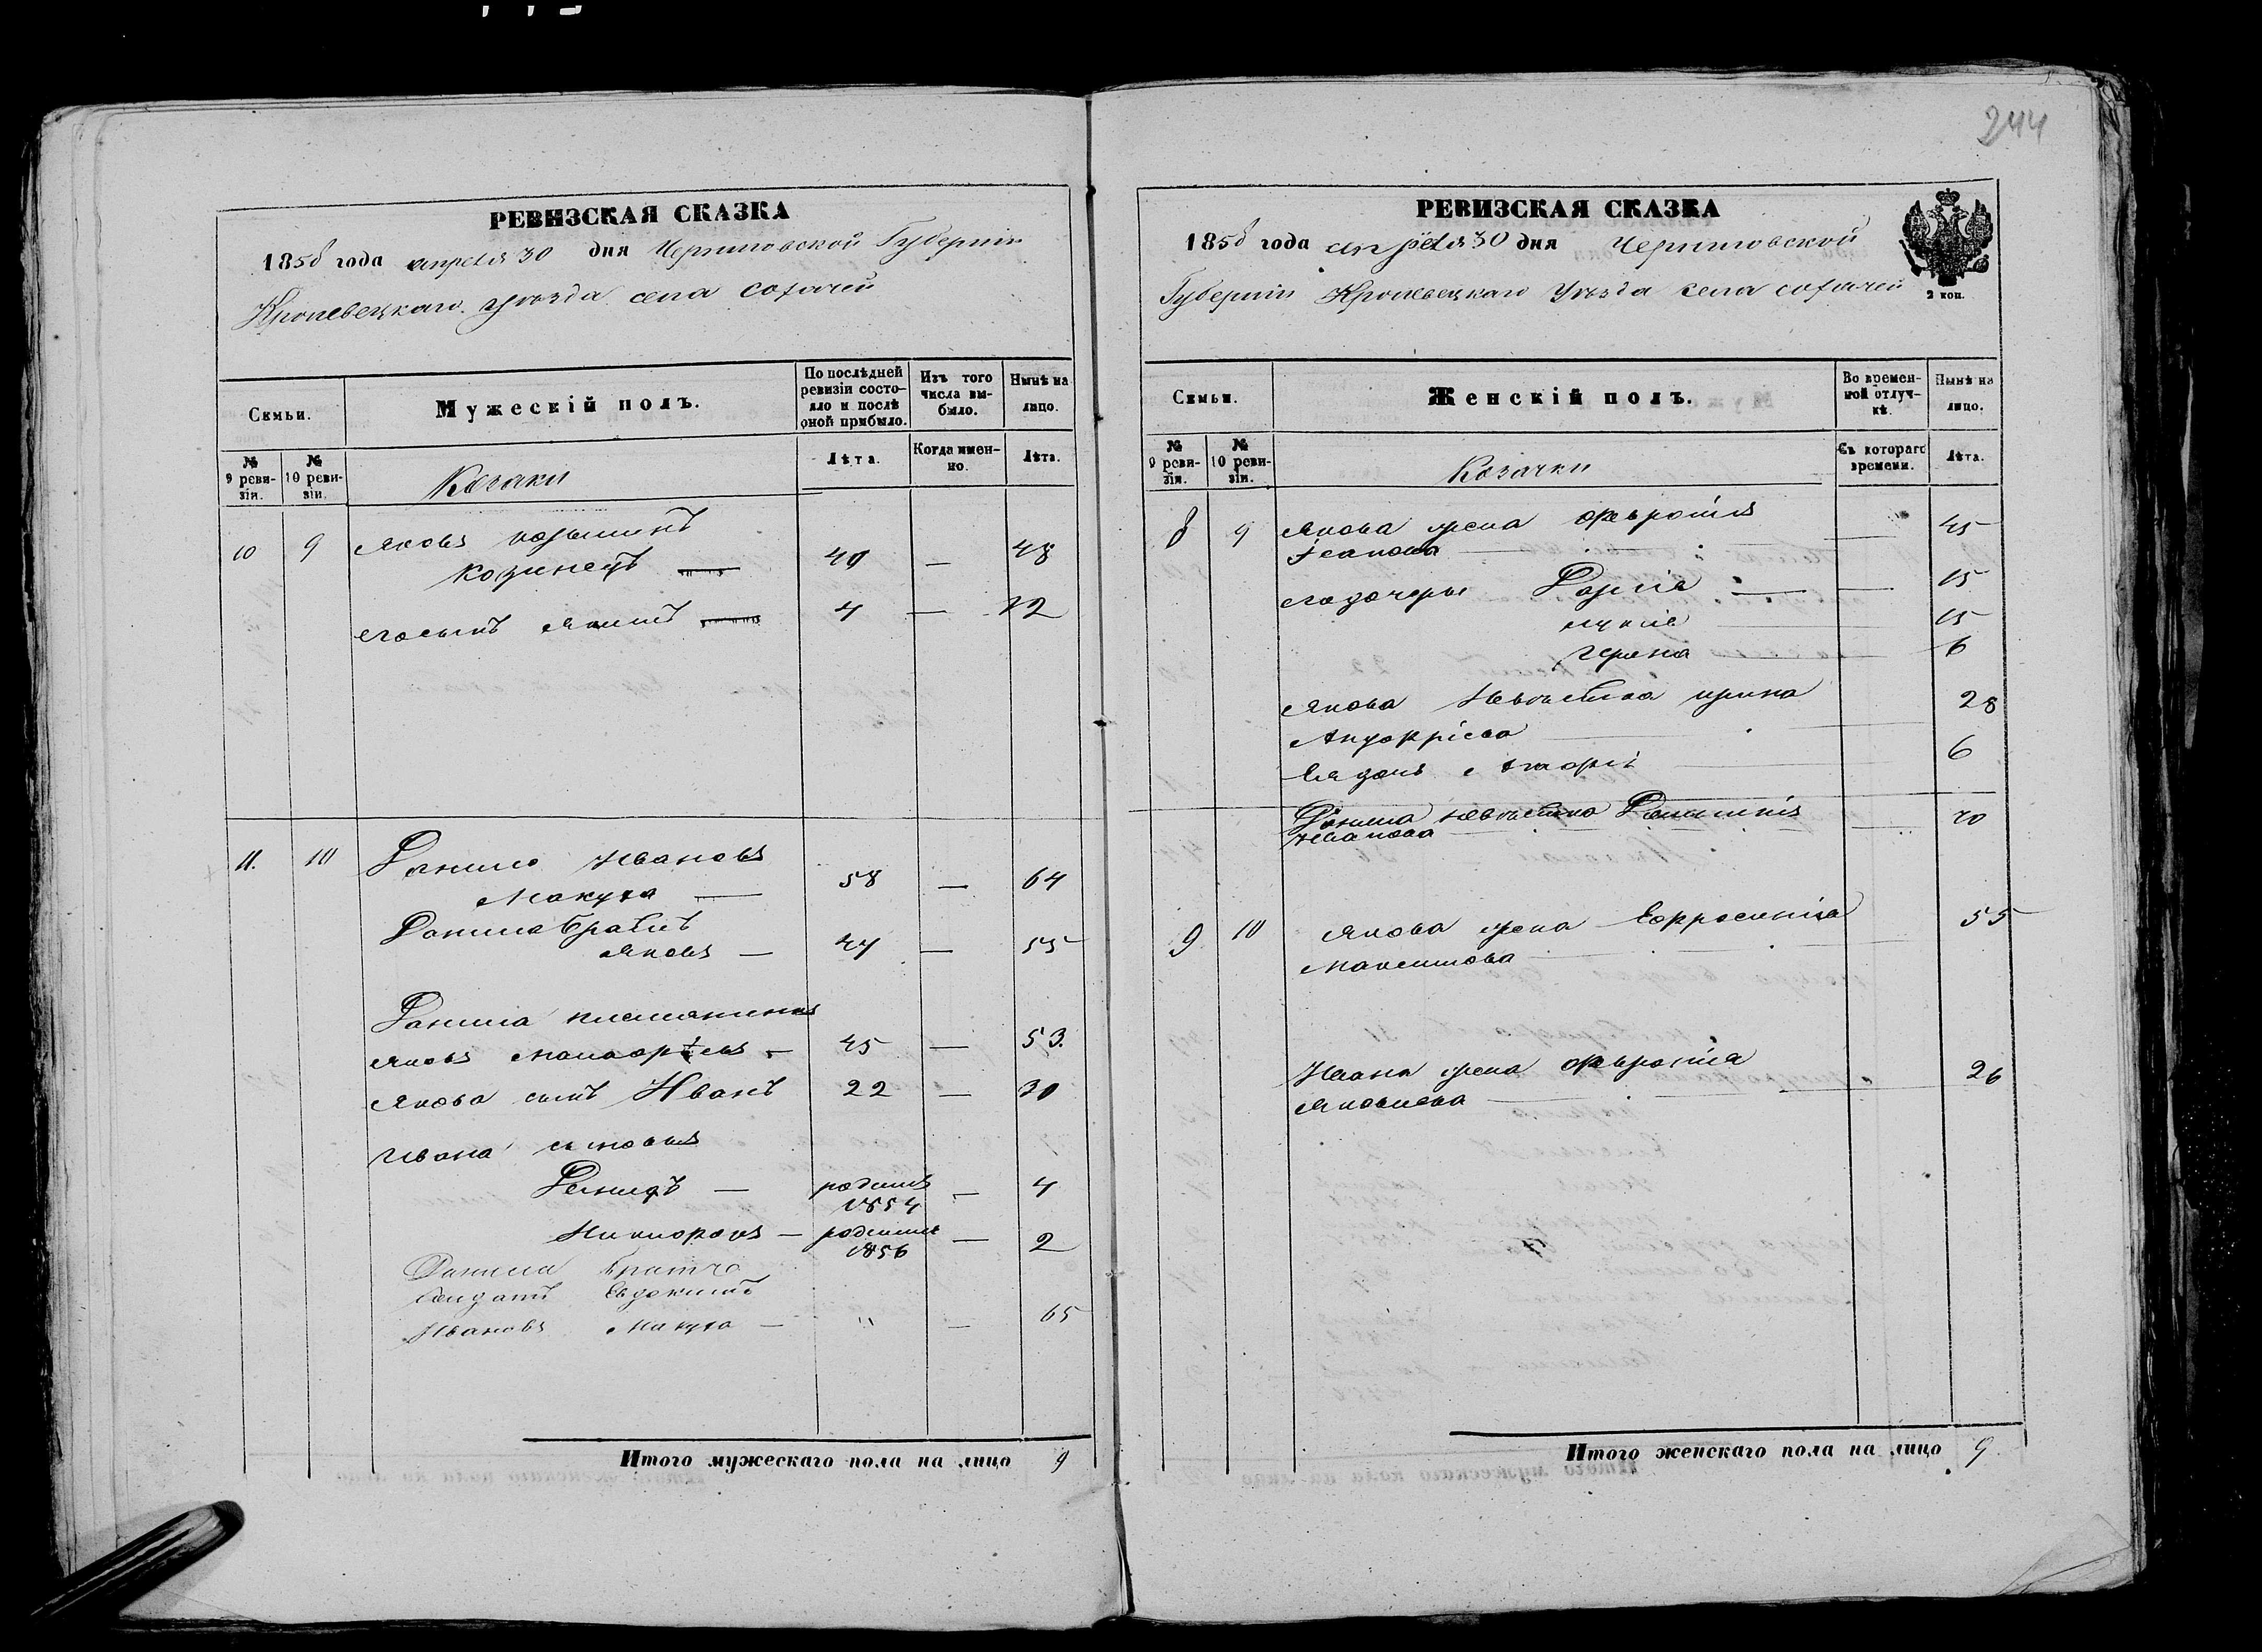 244
РЕВИЗСКАЯ СКАЗКА
1858 года апреля 30 дня Черниговской Губерніи
Кролевецкаго уѣзда села
Семьи.
Мужескій полъ.
По послѣдней ревизіи состояло и послѣ оной прибыло.
Изъ того числа выбыло.
Нынѣ на лицо.
№ 9 ревизіи.
№ 10 ревизіи.
Козаки
Лѣта.
Когда именно.
Лѣта.
10 9 Яковъ
Козинецъ 40 — 48
Его сынъ 4 — 12
11. 10 Данило Ивановъ
Макуха — 58 — 64
Данила братъ
Яковъ — 47 — 55
Данила племянникъ
Яковъ — 45 — 53.
Якова сынъ Иванъ 22 — 30
Ивана сыновья
— родился 1854 — 4
Никифоръ — родился 1856 — 2
Данила братъ
Солдатъ Евдокимъ
Ивановъ Макуха — " — 65
Итого мужескаго пола на лицо 9
РЕВИЗСКАЯ СКАЗКА
1858 года апрѣля 30 дня Черниговской
Губерніи Кролевецкаго Уѣзда села
2 коп.
Семьи.
Женскій полъ.
Во временной отлучкѣ.
Нынѣ на лицо.
№ 9 ревизіи.
№ 10 ревизіи.
Козачки
Съ котораго времени.
Лѣта.
8 9 Якова жена Февронія
Иванова — — 45
Его дочери — — 15
— 15
— 6
Якова Невѣстка Ирина 28
Андрѣева —
Ея дочь — 6
Данила невѣстка
Иванова — 70
9 10 Якова жена Ефросинія 55
Максимова —
Ивана жена Февронія 26
Яковлева —
Итого женскаго пола на лицо 9